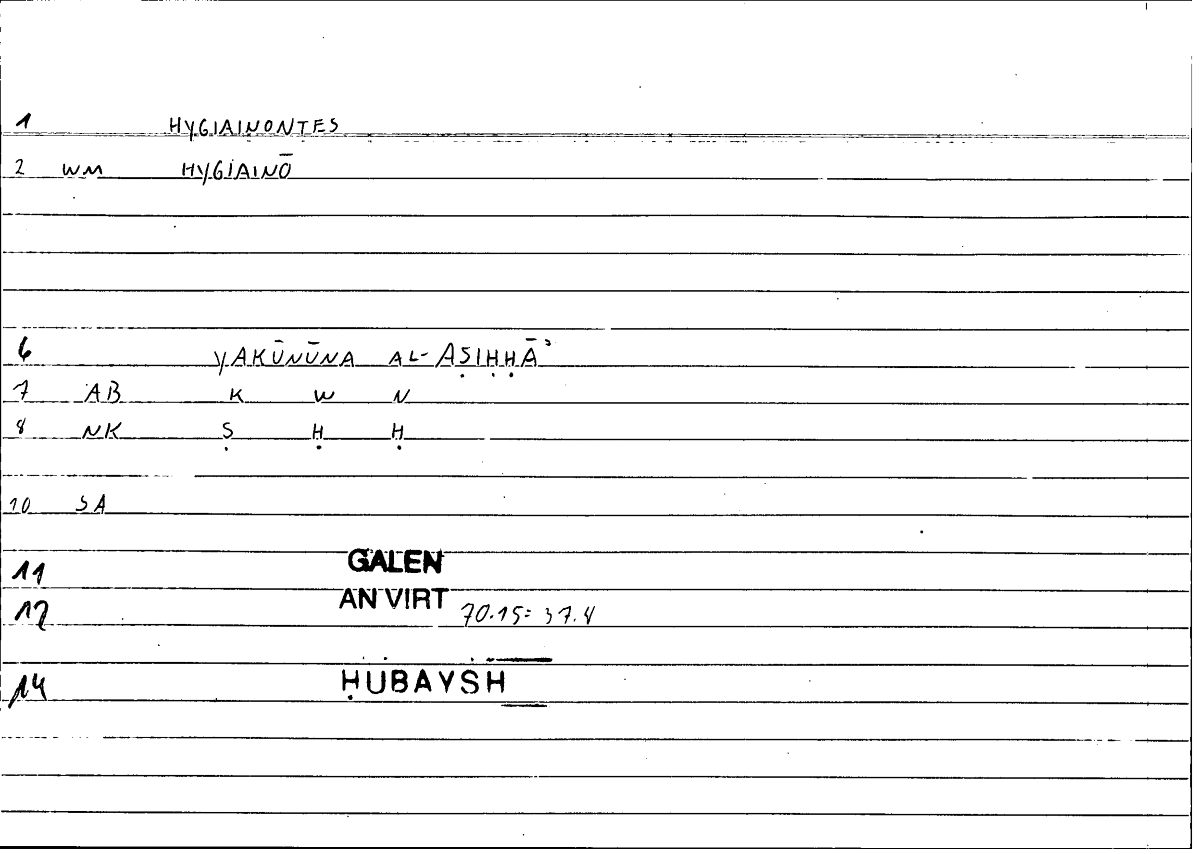 1 HYGIAINONTES
2 WM HYGIAINŌ
6 YAKŪNŪNA AL-AṢIḤḤĀʾ
7 AB K W N
8 NK Ṣ Ḥ Ḥ
10 SA
11 GALEN
12 AN VIRT 70.15 = 37.4
14 ḤUBAYSH